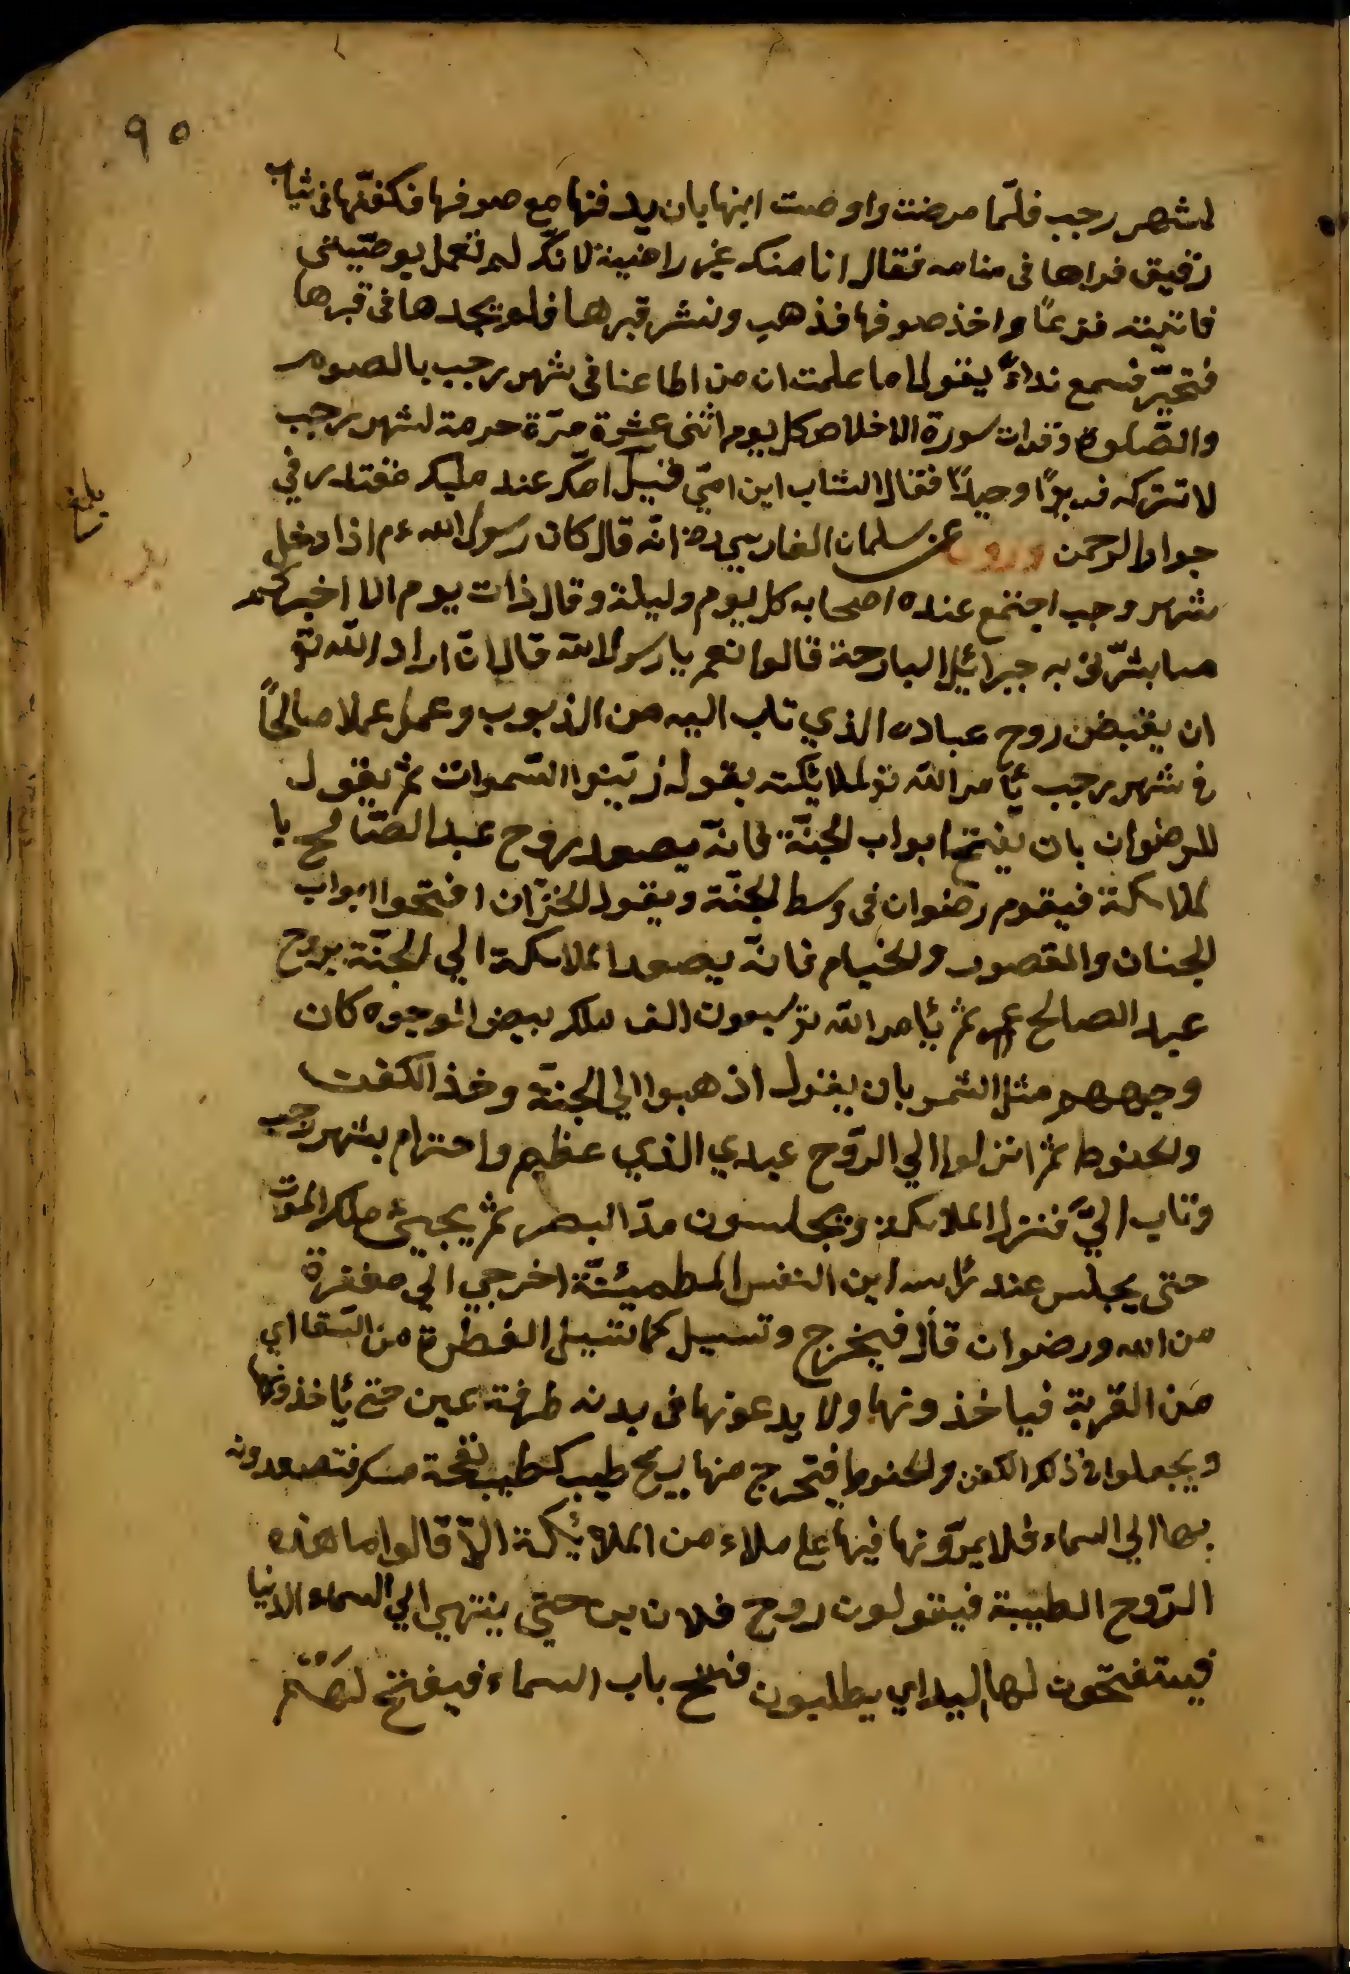 ٩٥
لشهر رجب فلمّا مرضت واوصت ابنها بان يدفنها مع صوفها فكفّنها فى ثياب
رفيق فراها فى منامه فقال انا منك غير راضية لانّك لم تعمل بوصّيتى
فانتبه فزعًا واخذ صوفها فذهب ونشر قبرها فلم يجدها فى قبرها
فتحيّر فسمع نداءً يقول اما علمت ان من اطاعنا فى شهر رجب بالصوم
والصّلوة وقرات سورة الاخلاص كل يوم اثنى عشرة مرّة حرمة لشهر رجب
لا تتركه فريدًا وحيدًا فقال الشاب اين امّي قيل امّك عند مليك مقتدر في
جوار الرحمن وروى عن سلمان الفارسي رض انّه قال كان رسول الله ءم اذا دخل
شهر رجب اجتمع عنده اصحابه كل يوم وليلة وقال ذات يوم الا اخبركم
مما بشّرنى به جبرائيل البارحة قالوا نعم يا رسول الله قال انّ اراد الله تع
ان يقبض روح عباده الذي تاب اليه من الذنوب وعمل عملا صالحًا
فى شهر رجب يأمر الله تع لملائكته بقوله زيّنوا السّموات ثم يقول
للرضوان بان يفتح ابواب الجنّة فانّه يصعد بروح عبد الصّالح يا
ملائكة فيقوم رضوان فى وسط الجنّة ويقول الخزّان افتحوا ابواب
الجنان والقصور والخيام فانّه يصعد الملائكة الي الجنّة بروح
عبد الصالح ثم يأمر الله تع سبعون الف ملك بيض الوجوه كان
وجههم مثل الشمس بان يقول اذهبوا الي الجنّة وخذ الكفن
والحنوط ثم انزلوا الي الرّوح عبدي الذي عظيم واحترام بشهر رجب
وتاب اليّ فنزل الملائكة ويجلسون مدّ البصر ثم يجيئ ملك الموت
حتى يجلس عند رأسه اين النفس المطمئنّة اخرجي الي مغفرة
من الله ورضوان قال فيخرج وتسيل كما تسيل القطرة من السّقا اي
من القربة فياخذونها ولا يدعونها فى بدنه طرفة عين حتى يأخذونها
ويجعلوا فى ذلك الكفن والحنوط فيخرج منها ريح طيب كطيب نفحة مسك فتصعدونه
بها الي السماء فلا يمرّونها فيها علي ملاء من الملائكة الّا قالوا ما هذه
الرّوح الطيبة فيقولون روح فلان بن حتى ينتهي الي السماء الدنيا
فيستفتحون لها اليه اي يطلبون فتح باب السماء فيفتح لهم